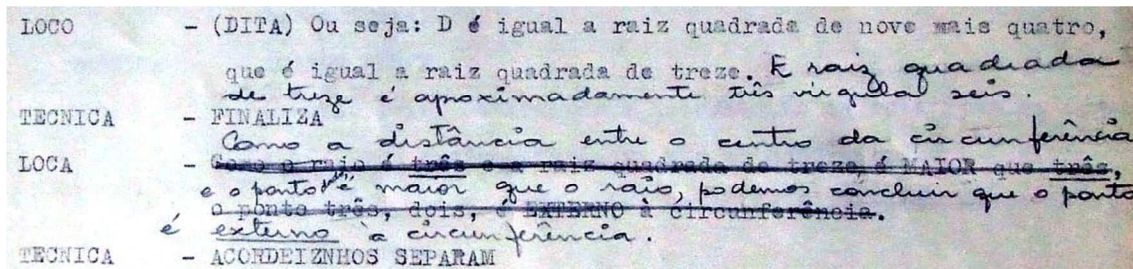 LOCO - (DITA) Ou seja: D é igual a raiz quadrada de nove mais quatro,
que é igual a raiz quadrada de treze. E raiz quadrada
de treze é aproximadamente três virgula seis.
TECNICA - FINALIZA
Como a distância entre o centro da circunferência
LOCA - Como o raio é três e a raiz quadrada de treze, é MAIOR que três,
e o ponto é maior que o raio, podemos concluir que o ponto
o ponto três, dois, é EXTERNO à circunferência.
é externo à circunferência.
TECNICA - ACORDEIZNHOS SEPARAM